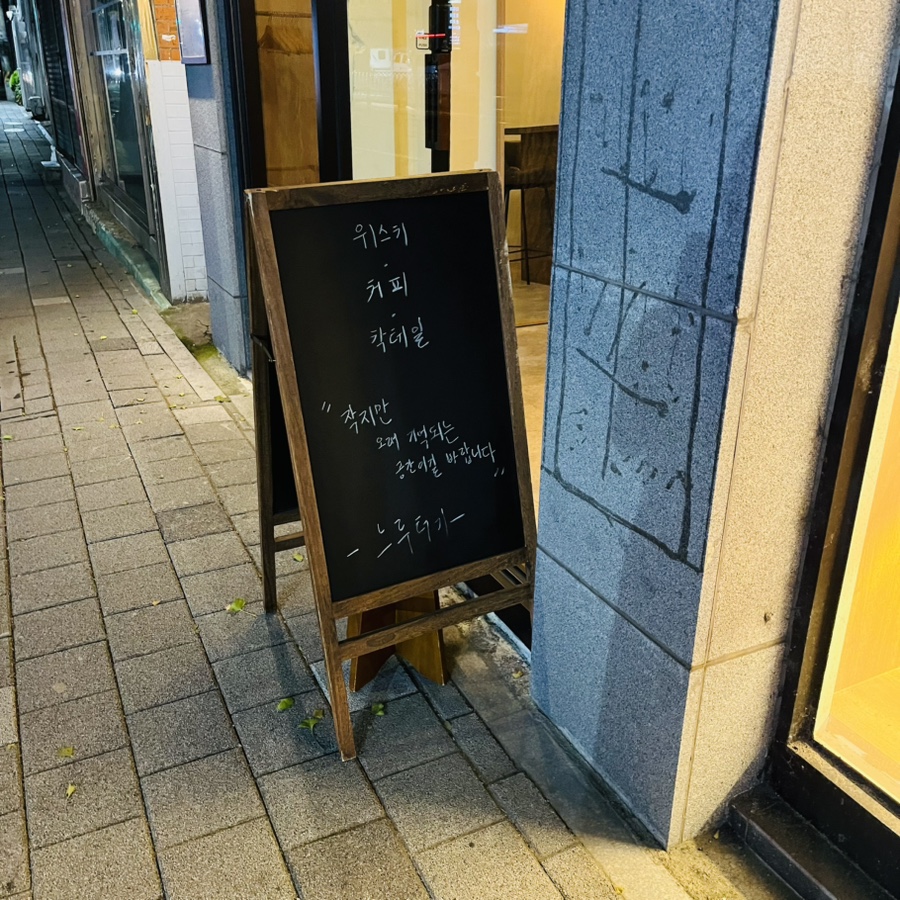 위스키
·
커피
·
칵테일
"작지만
오래 기억되는
공간이길 바랍니다"
- 노루터기 -